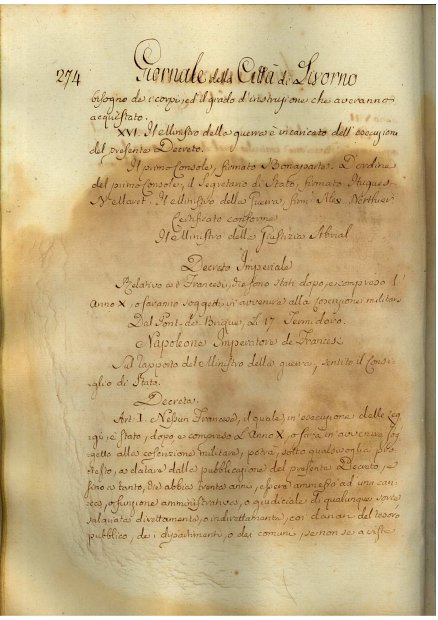 274 Giornale della Città di Livorno
bisogno de i corpi, ed il grado d'instruzione che averanno
acquistato.
XVI. Il Ministro della guerra è incaricato dell'esecuzione
del presente Decreto.
Il primo Console, firmato Bonaparte. D'ordine
del primo Console, il Segretario di Stato, firmato Hugues
Maret. Il Ministro della Guerra, firm. Alex. Berthier
Certificato conforme
Il Ministro della Giustizia Abrial
Decreto Imperiale
Relativo a i Francesi, che sono stati dopo, e compreso l'
Anno X, o saranno soggetti in avvenire alla coscrizione militare
Dal Pont-de Brique, li 17 Termidoro.
Napoleone Imperatore de Francesi
Sul rapporto del Ministro della guerra, sentito il Consi-
glio di Stato.
Decreta.
Art. I. Nessun Francese, il quale, in esecuzione delle Leg
gi, è stato, dopo, e compreso l'Anno X, o sarà in avvenire sog
getto alla coscrizione militare, potrà, sotto qualsivoglia pre
testo, a datare dalla pubblicazione del presente Decreto, e
fino a tanto, che abbia trenta anni, essere ammesso ad una cari
ca, o funzione amministrativa, o giudiciale di qualunque sorte
salariata direttamente, o indirettamente, coi danari del tesoro
pubblico, de i dipartimenti, o dei comuni, se non se a viste